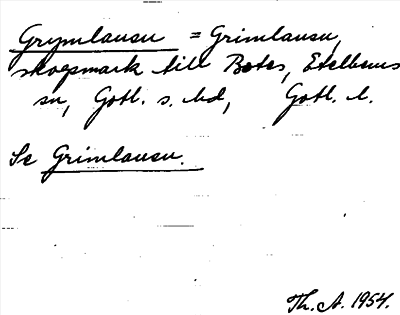 Grymlausu = Grimlausu,
skogsmark till Botes, Etelhems
sn, Gotl. s. hd, Gotl. l.
Se Grimlausu.
Th. A. 1954.